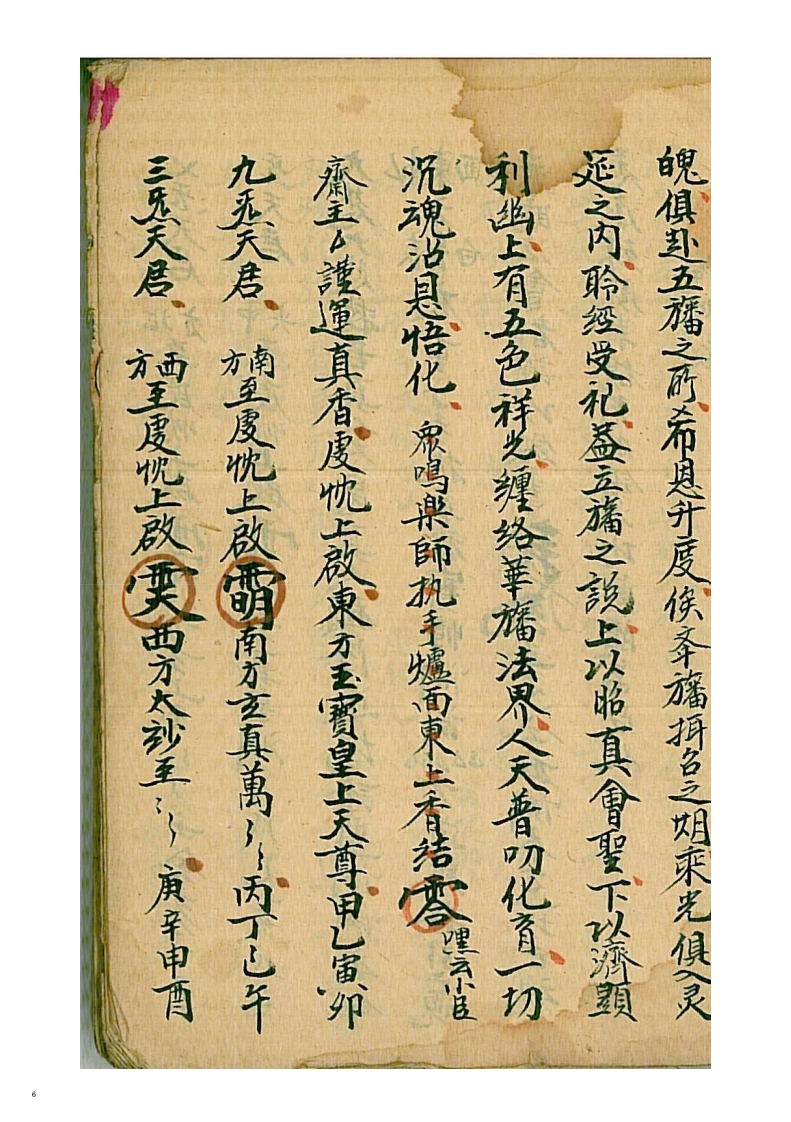 魄俱赴五旛之所希恩升度俟奉旛揖召之期乘光俱入灵
延之内聆經受祀益立旛之說上以昭真會聖下以濟顕
利幽上有五色祥光纏絡華旛法界人天普叨化育一切
沉魂沾恩悟化 衆鳴樂師执手爐面東上香結 嘿云小臣
齋主厶謹運真香虔忱上啟東方玉寳皇上天尊甲乙寅卯
九炁天君 南方至虔忱上啟 南方玄真萬〻〻丙丁巳午
三炁天君 西方至虔忱上啟 西方太玅至〻〻庚辛申酉
6